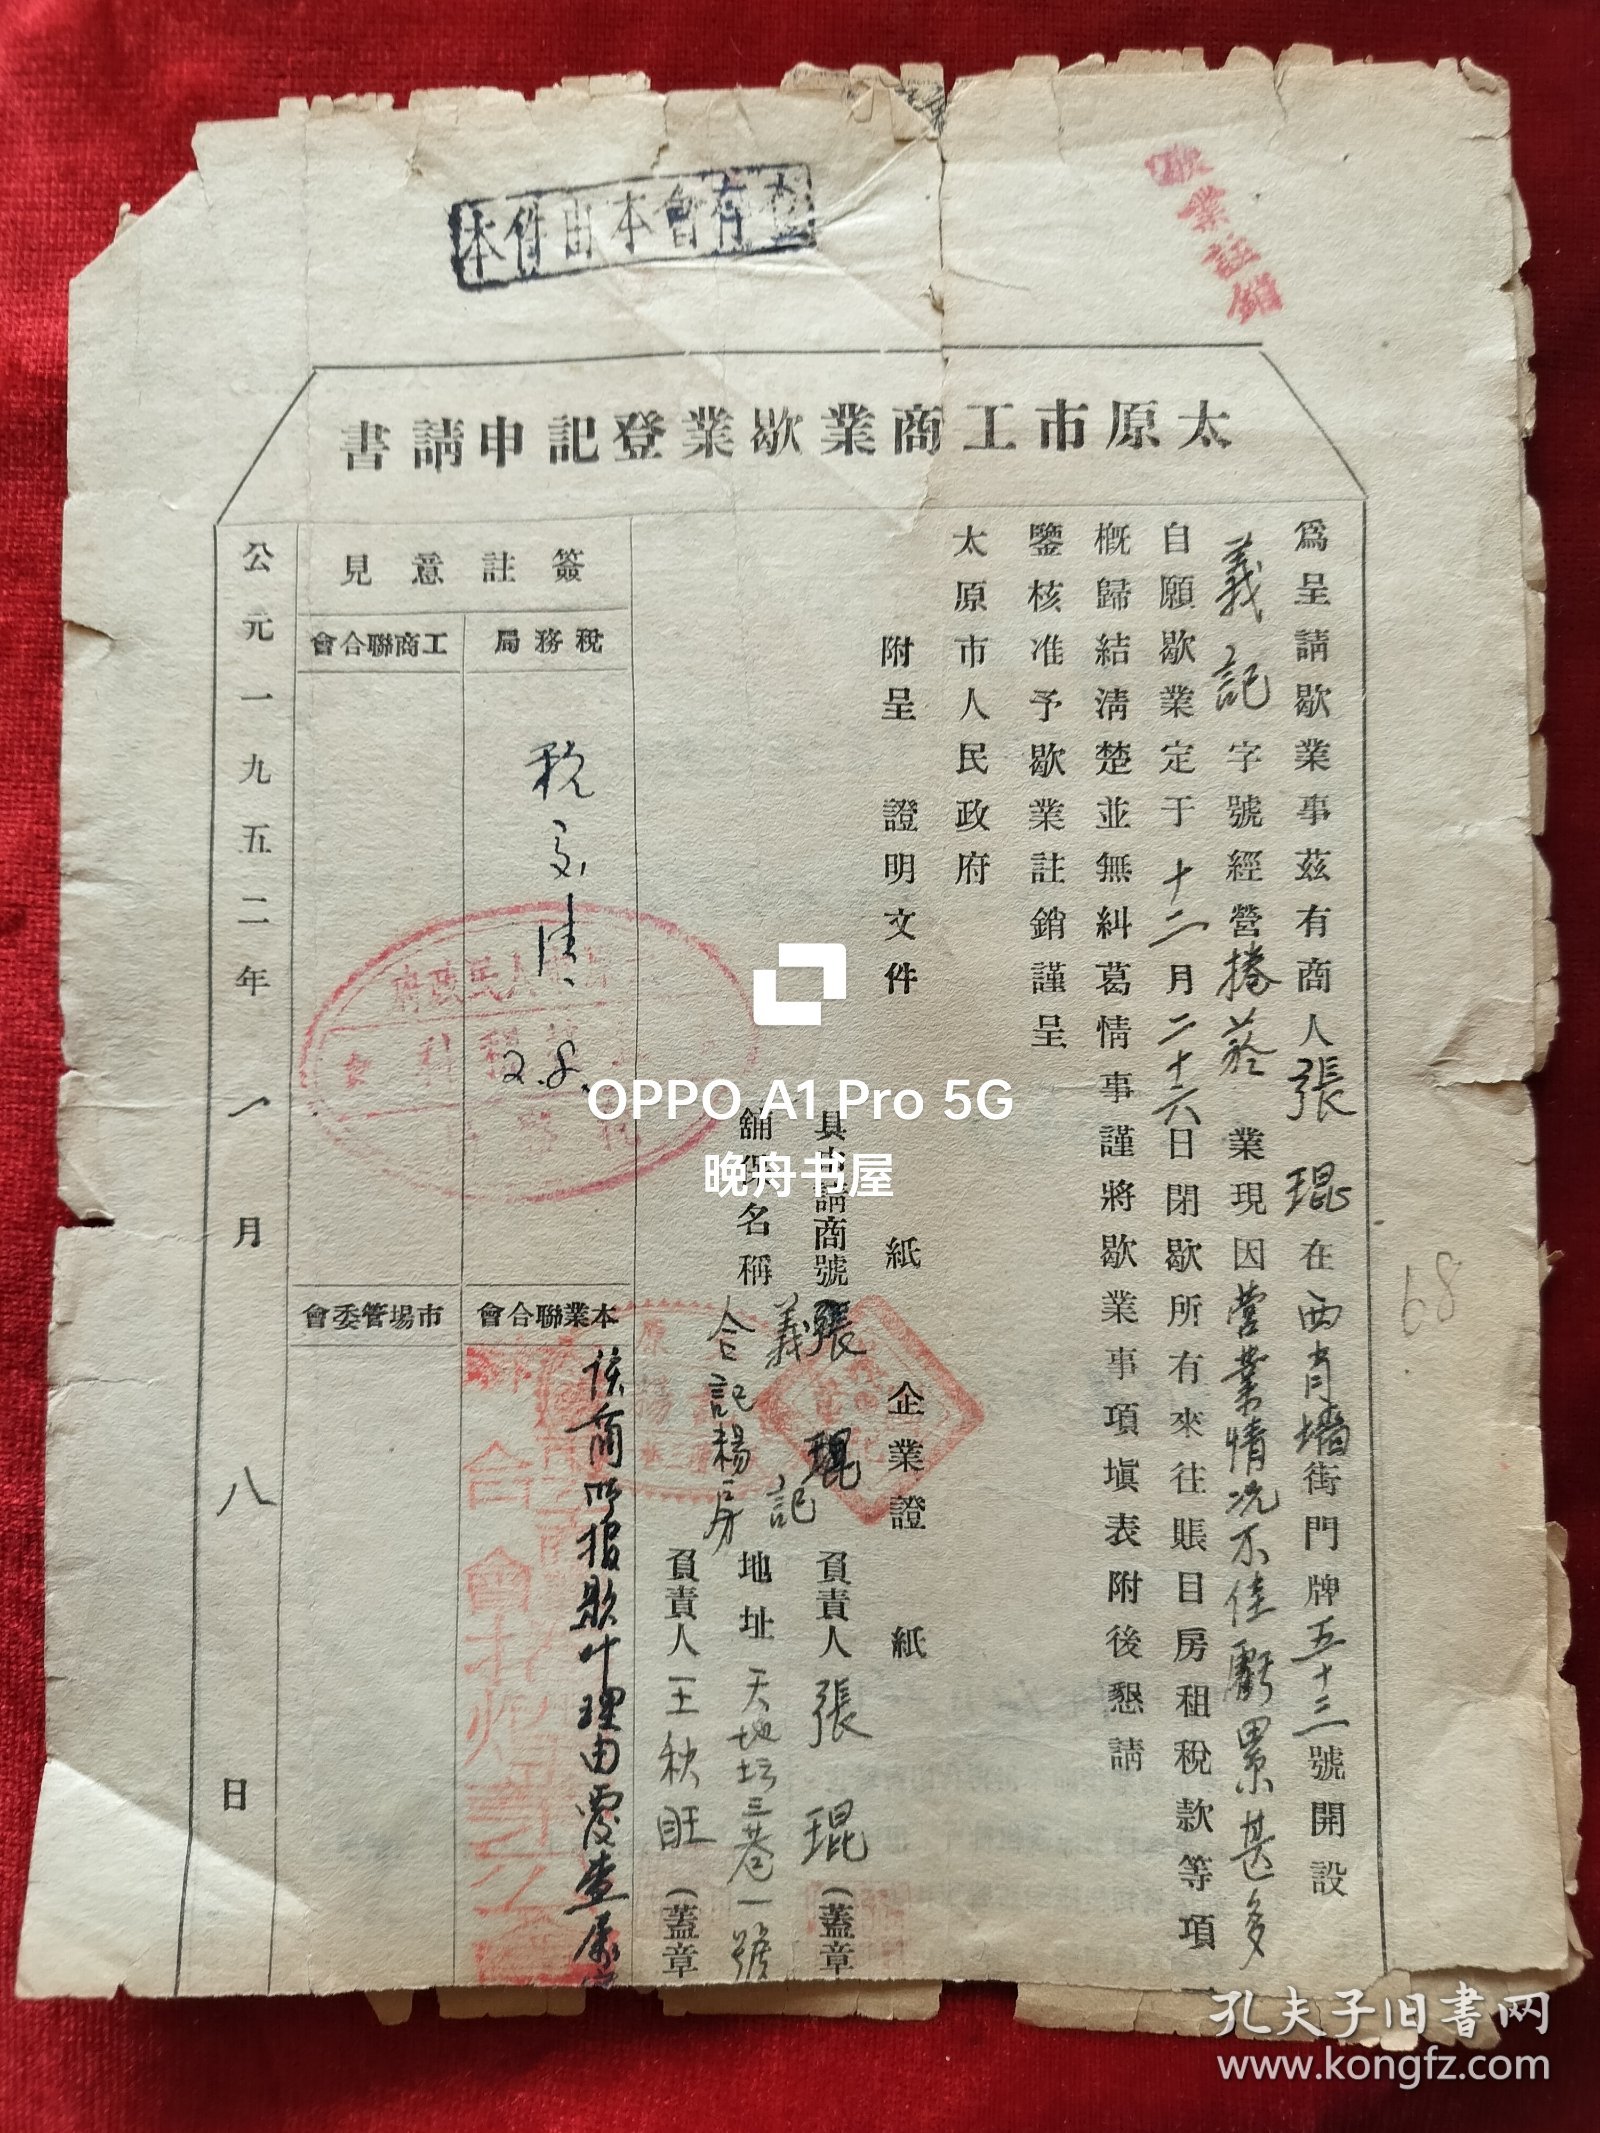 歇業註銷
本件由本會存查
太原市工商業歇業登記申請書
爲呈請歇業事茲有商人張琨在西肖墻街門牌五十三號開設
義記字號經營捲菸業現因營業情况不佳虧累甚多
自願歇業定于十二月二十六日閉歇所有來往賬目房租稅款等項
概歸結淸楚並無糾葛情事謹將歇業事項塡表附後懇請
鑒核准予歇業註銷謹呈
太原市人民政府
附呈 證明文件 紙 企業證 紙
具申請商號 義記 張琨 負責人 張琨 (蓋章
舖保名稱 合記楊房 地址 天地坛三巷一號
負責人 王秋旺 (蓋章
簽註意見
稅務局
税
2.8.
工商聯合會
本業聯合會
該商所报歇业理由覆查屬
市場管委會
公元一九五二年一月八日
68
OPPO A1 Pro 5G
晚舟书屋
孔夫子旧书网
www.kongfz.com